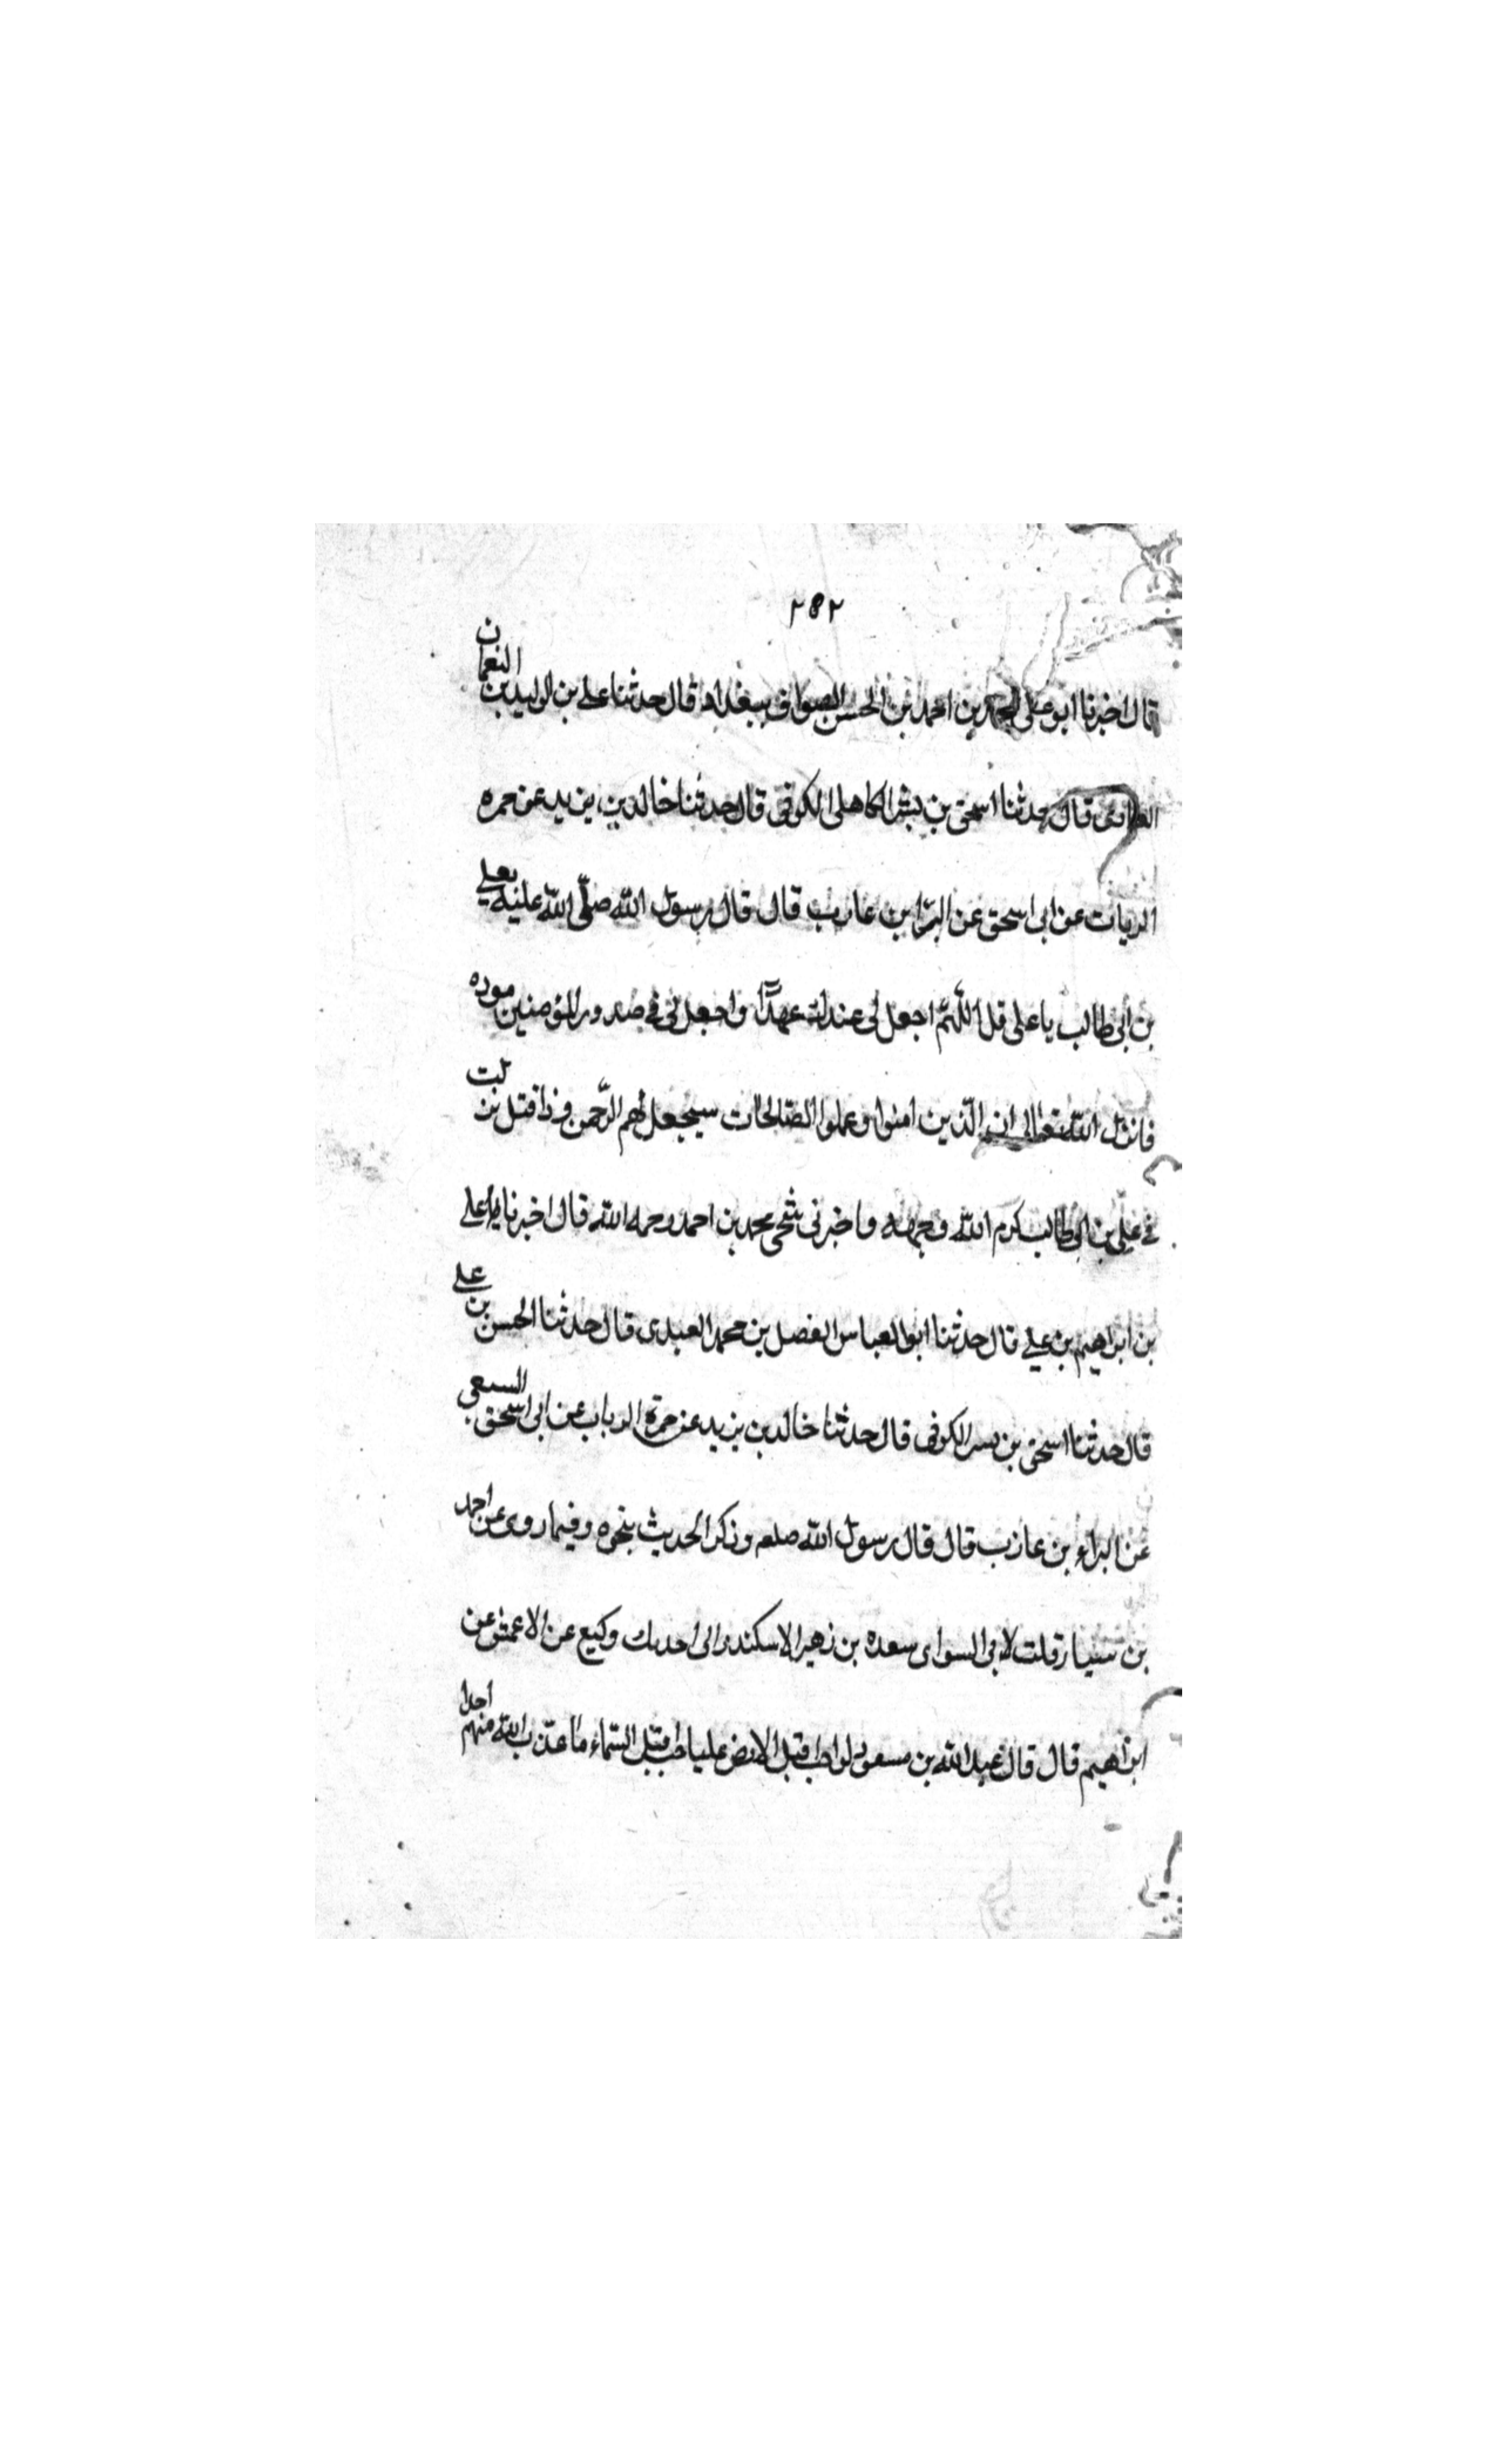 ٢٥٢
قال اخبرنا ابو علي محمد بن احمد بن الحسن الصواف ببغداد قال حدثنا علي بن الوليد بن النعمان
قال حدثنا اسحق بن بشر الكاهلي الكوفي قال حدثنا خالد بن يزيد عن حمزه
الريات عن ابي اسحق عن البرّا بن عازب قال قال رسول الله صلّى الله عليه لعلي
بن ابي طالب يا علي قل اللّهمّ اجعل لي عندك عهدًا واجعل لي في صدور المؤمنين موده
فانزل الله تعالى ان الّذين امنوا وعملوا الصّالحات سيجعل لهم الرّحمن ودّا قتل نزلت
في عليّ بن ابي طالب كرم الله وجهه واخبرني شيخي محمد بن احمد رحمه الله قال اخبرنا علي
بن ابراهيم بن علي قال حدثنا ابو العباس الفضل بن محمد العبدي قال حدثنا الحسن بن علي
قال حدثنا اسحق بن بسر الكوفي قال حدثنا خالد بن يزيد عن حمزة الرباب عن ابي اسحق السبعي
عن البراء بن عازب قال قال رسول الله صلعم وذكر الحديث بنحوه وفيما روى عن احمد
بن سيار قلت لابي السواى سعده بن زهير الاسكندرانى احدبك وكيع عن الاعمش عن
ابراهيم قال قال عبد الله بن مسعود لو احب قبل الارض عليا حب قبل السّماء ما عذّب الله منهم احدا